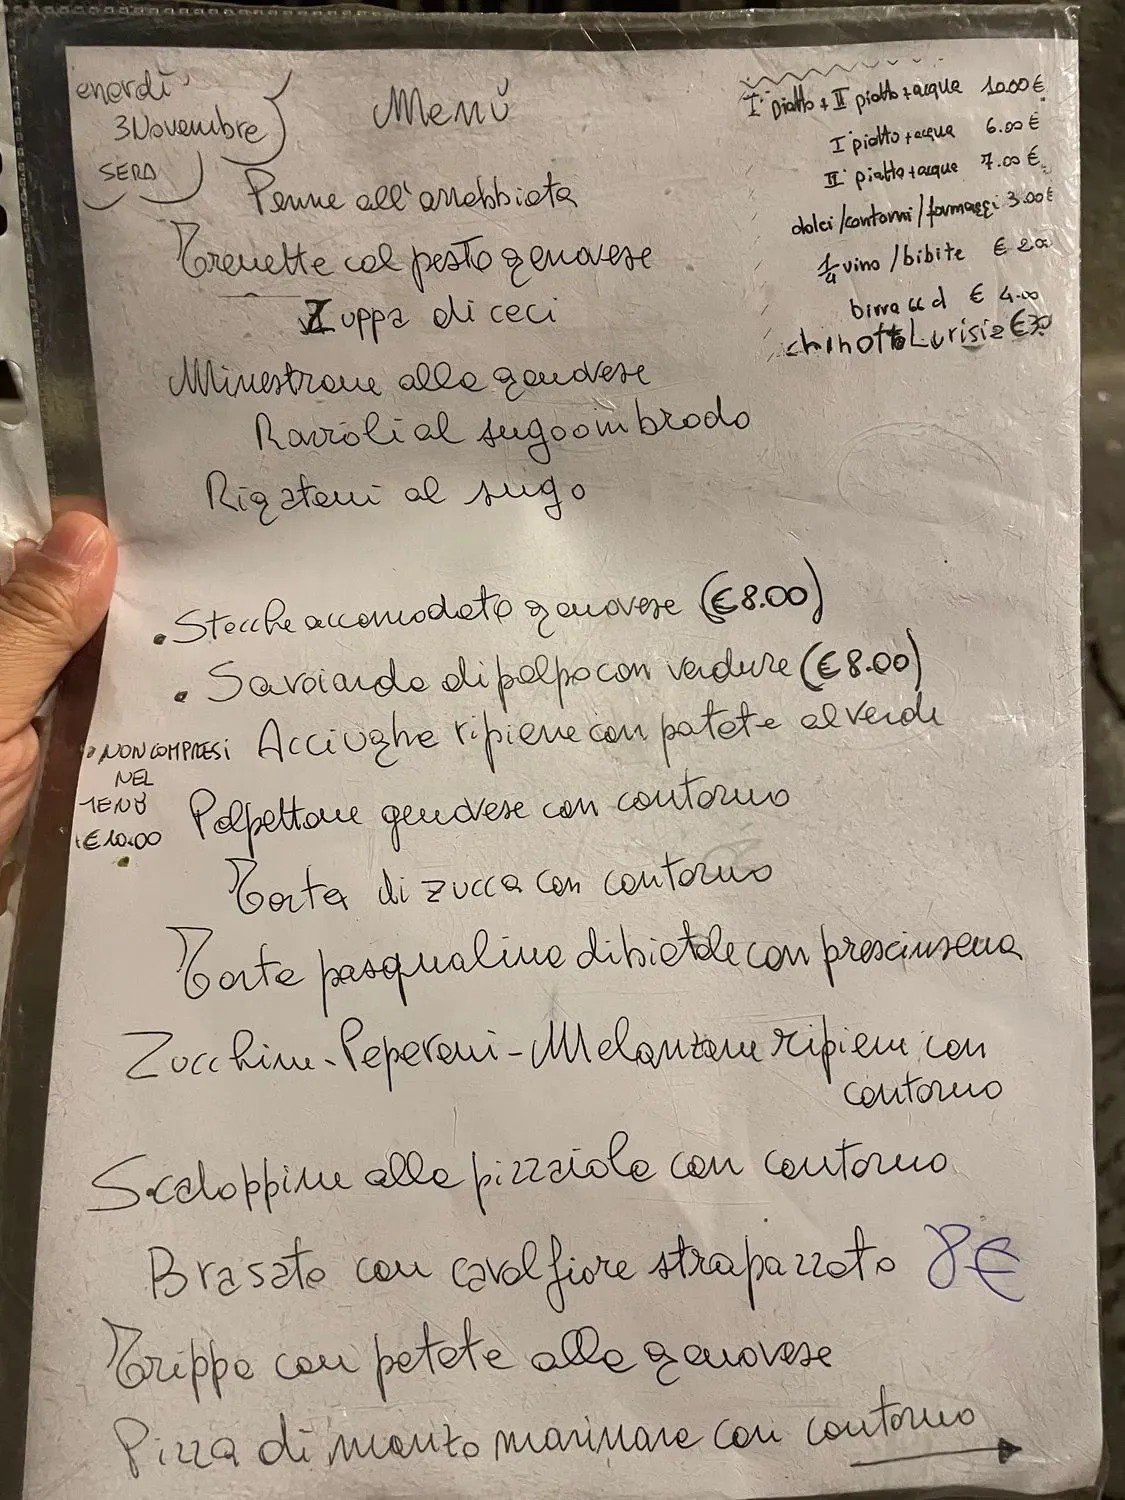 enerdì
3 Novembre
SERA
Menù
I° piatto + II piatto + acqua 10.00 €
I° piatto + acqua 6.00 €
II° piatto + acqua 7.00 €
dolci/contorni/formaggi 3.00 €
1/4 vino / bibite € 2.00
birra cl € 4.00
chinotto Lurisia €
Penne all'arrabbiata
Trenette col pesto genovese
Zuppa di ceci
Minestrone alla genovese
Ravioli al sugo o in brodo
Rigatoni al sugo
• Stecche accomodato genovese (€ 8.00)
• Savoiarda di polpo con verdure (€ 8.00)
Acciughe ripiene con patate al verde
• NON COMPRESI
NEL
MENÙ
€ 10.00
Polpettone genovese con contorno
Torta di zucca con contorno
Torta pasqualina di bietole con prescinsena
Zucchine - Peperoni - Melanzane ripiene con
contorno
Scaloppine alla pizzaiola con contorno
Brasato con cavolfiore strapazzato 8€
Trippa con patate alla genovese
Pizza di manzo marinara con contorno